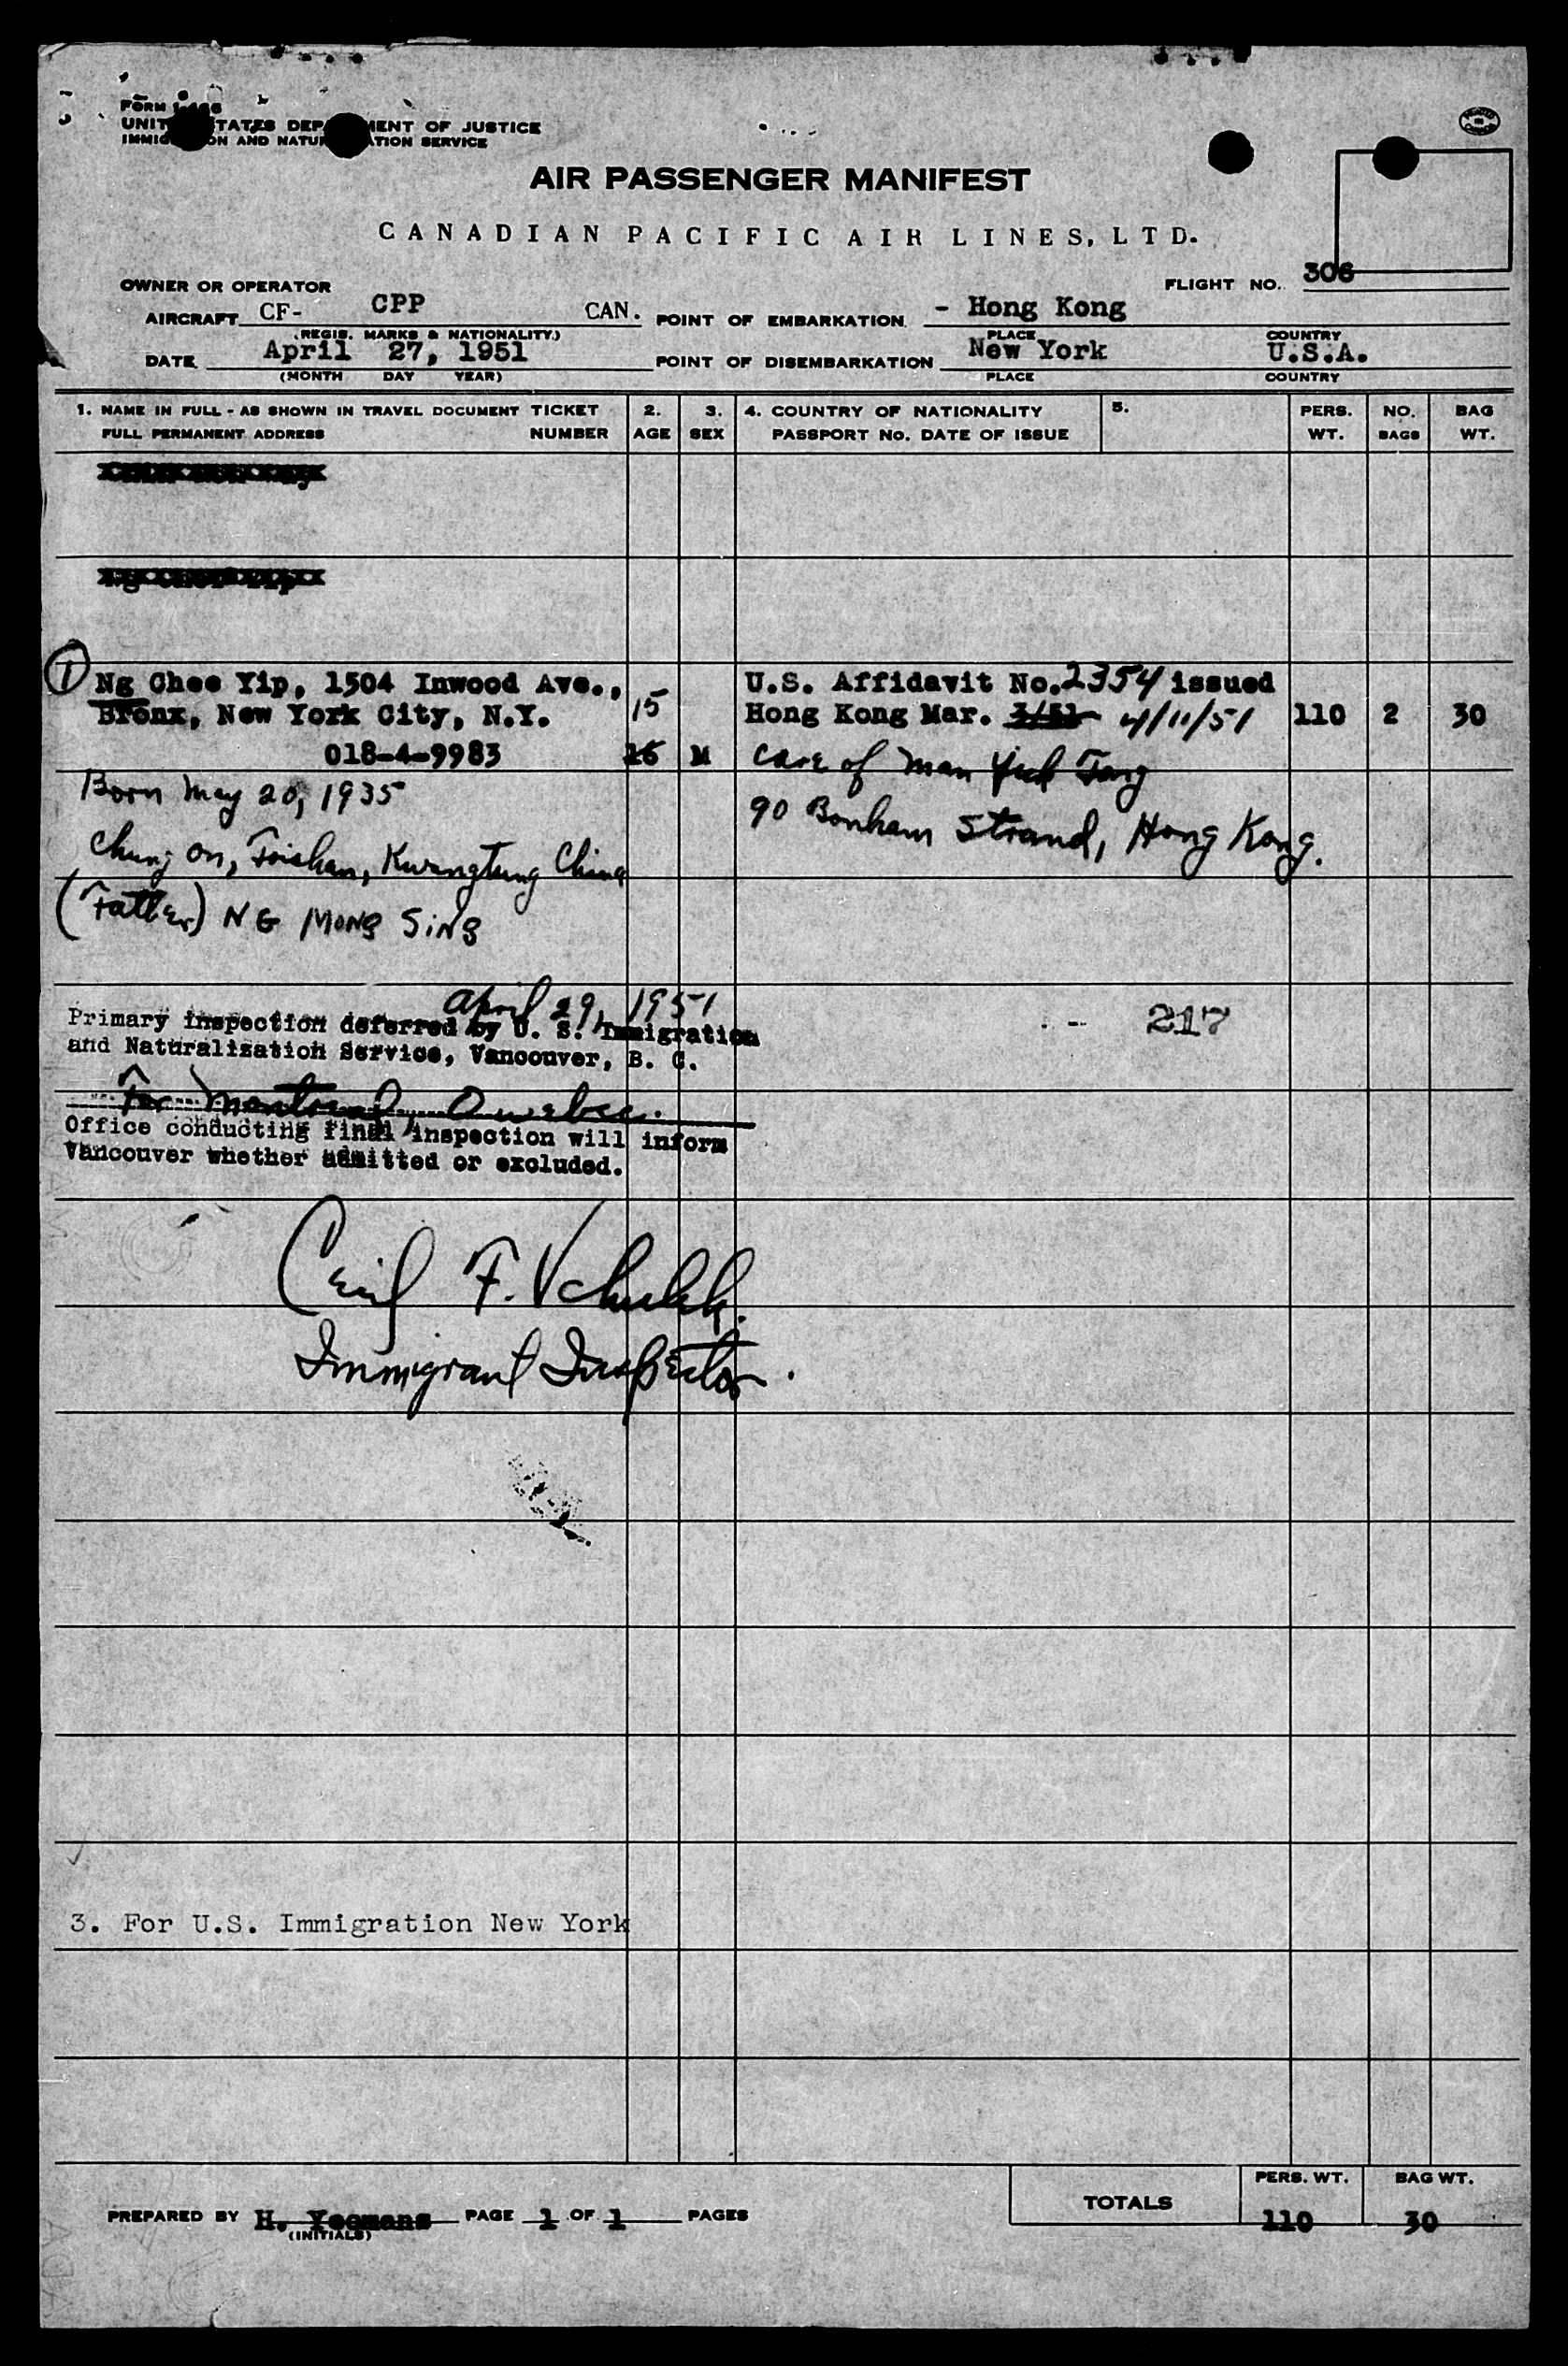 FORM I-466
UNITED STATES DEPARTMENT OF JUSTICE
IMMIGRATION AND NATURALIZATION SERVICE
AIR PASSENGER MANIFEST
CANADIAN PACIFIC AIR LINES, LTD.
OWNER OR OPERATOR
FLIGHT NO. 306
AIRCRAFT CF- CPP CAN. POINT OF EMBARKATION - Hong Kong
(REGIS. MARKS & NATIONALITY) PLACE COUNTRY
DATE April 27, 1951 POINT OF DISEMBARKATION New York U.S.A.
(MONTH DAY YEAR) PLACE COUNTRY
1. NAME IN FULL - AS SHOWN IN TRAVEL DOCUMENT TICKET 2. 3. 4. COUNTRY OF NATIONALITY 5. PERS. NO. BAG
FULL PERMANENT ADDRESS NUMBER AGE SEX PASSPORT No. DATE OF ISSUE WT. BAGS WT.
1 Ng Chee Yip, 1504 Inwood Ave., U.S. Affidavit No. 2354 issued
Bronx, New York City, N.Y. 15 Hong Kong Mar. 3/51 4/11/51 110 2 30
018-4-9983 16 M care of Man Yick Tong
Born May 20, 1935
90 Bonham Strand, Hong Kong.
Chung On, Toishan, Kwangtung China
(Father) NG MONG SING
April 29, 1951
Primary inspection deferred by U. S. Immigration 217
and Naturalization Service, Vancouver, B. C.
For Montreal, Quebec.
Office conducting final inspection will inform
Vancouver whether admitted or excluded.
Cecil F.
Immigrant Inspector.
3. For U.S. Immigration New York
PERS. WT. BAG WT.
TOTALS
PREPARED BY H. Yeomans PAGE 1 OF 1 PAGES 110 30
(INITIALS)